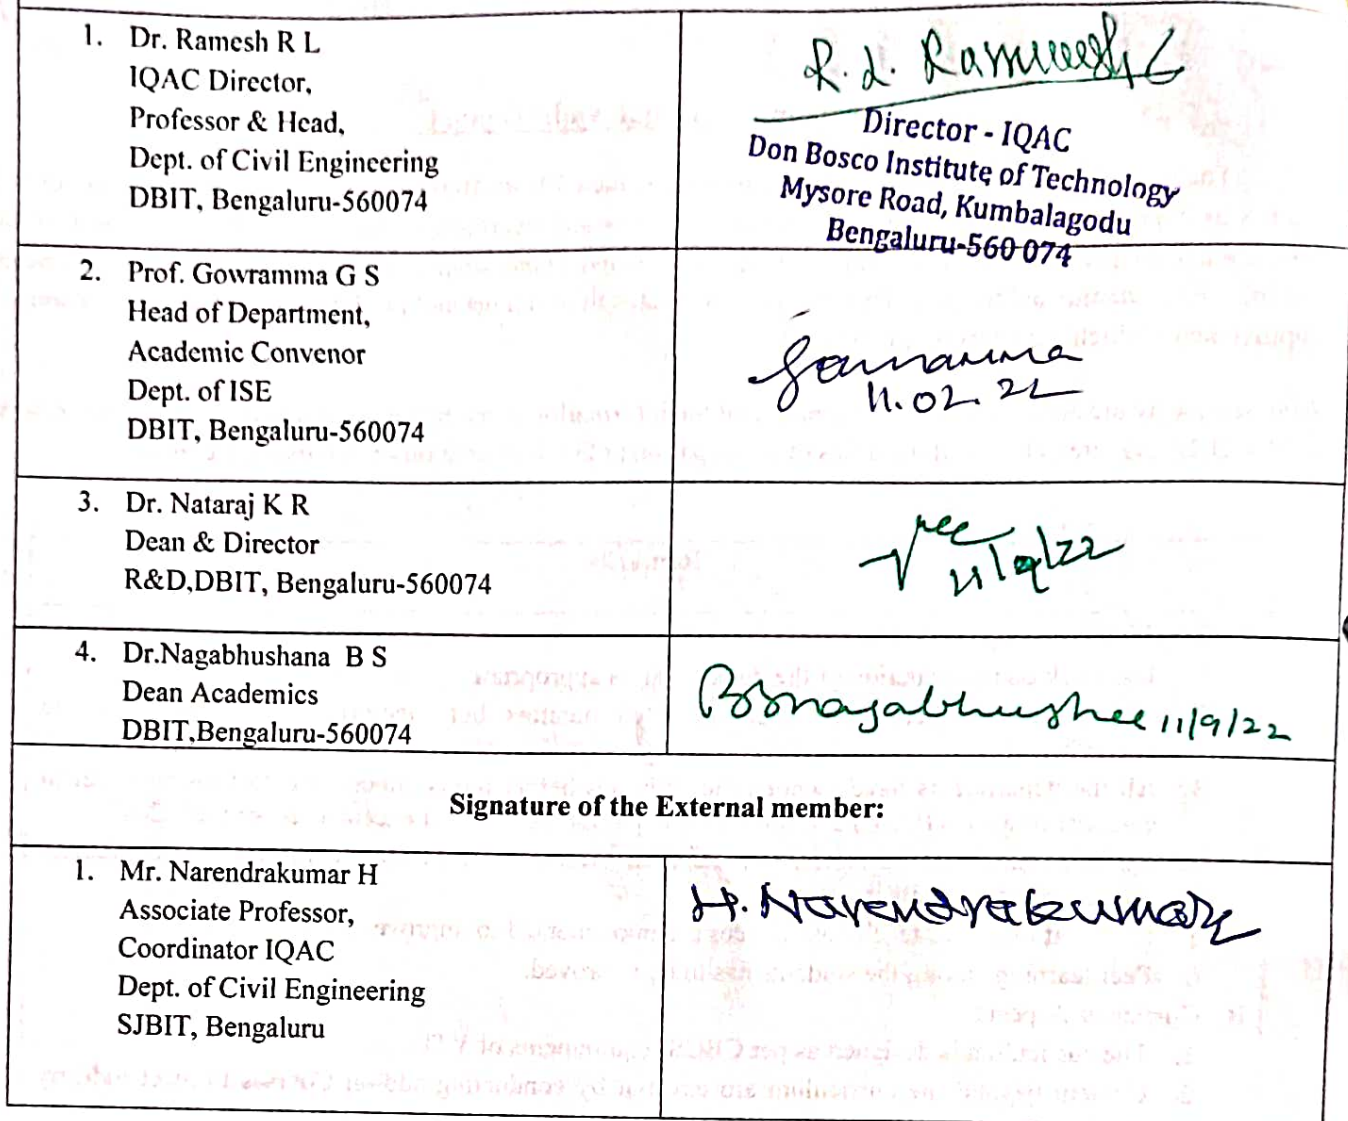 1. Dr. Ramesh R L
IQAC Director,
Professor & Head,
Dept. of Civil Engineering
DBIT, Bengaluru-560074
R. L. Ramesh
Director - IQAC
Don Bosco Institute of Technology
Mysore Road, Kumbalagodu
Bengaluru-560 074
2. Prof. Gowramma G S
Head of Department,
Academic Convenor
Dept. of ISE
DBIT, Bengaluru-560074
11.02.22
3. Dr. Nataraj K R
Dean & Director
R&D,DBIT, Bengaluru-560074
11/9/22
4. Dr.Nagabhushana B S
Dean Academics
DBIT,Bengaluru-560074
BSNagabhushana 11/9/22
Signature of the External member:
1. Mr. Narendrakumar H
Associate Professor,
Coordinator IQAC
Dept. of Civil Engineering
SJBIT, Bengaluru
H. Narendrakumar